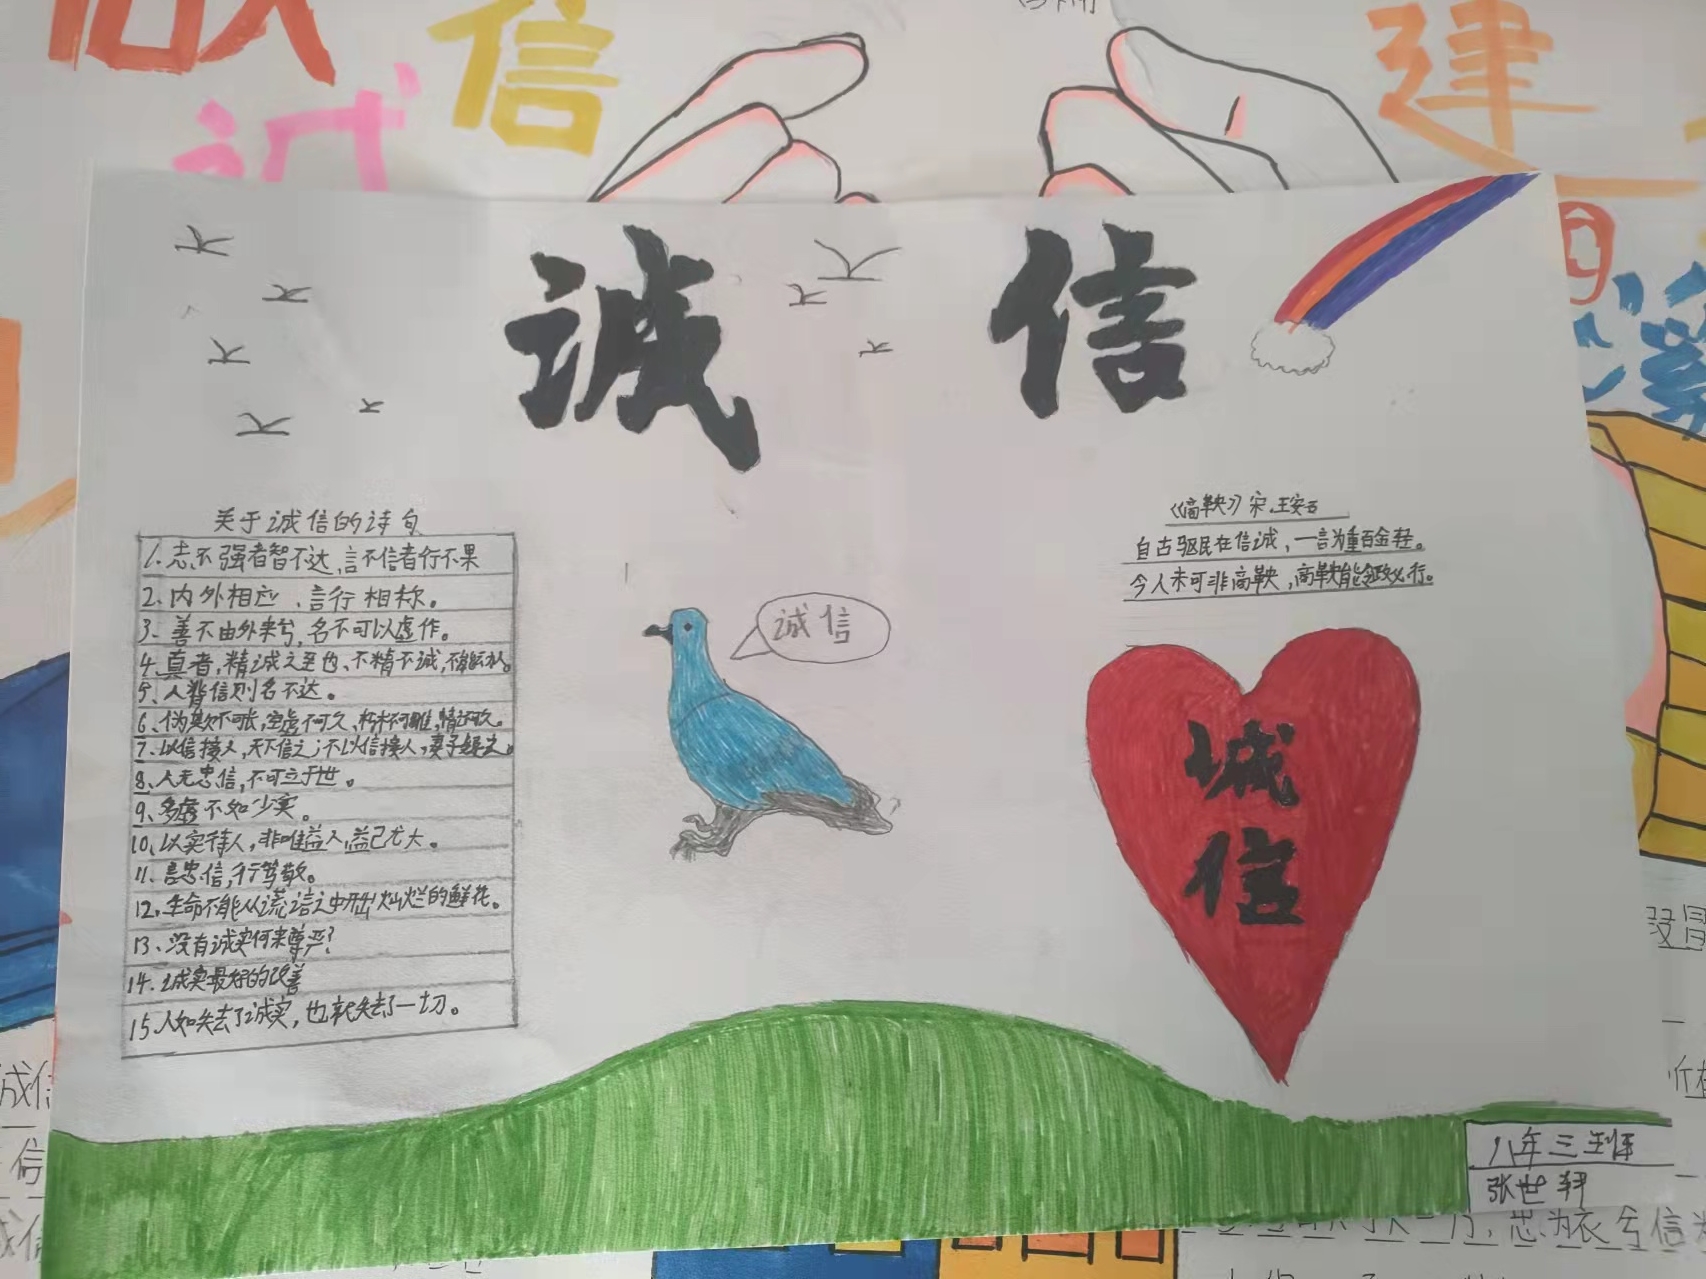 信
建
誠信
关于诚信的诗句
1.志不强者智不达,言不信者行不果
2.内外相应、言行相称。
3、善不由外来兮,名不可以虚作。
4.真者,精诚之至也、不精不诚,不能动人。
5、人背信则名不达。
6、伪欺不可长,空虚不可久、朽木不可雕,情
7、以信接人,天下信之;不以信接人,妻子疑之。
8、人无忠信,不可立于世。
9、多虚不如少实。
10、以实待人,非唯益人,益己尤大。
11、言忠信,行笃敬。
12、生命不能从谎言之中开出灿烂的鲜花。
13、没有诚实何来尊严?
14.诚实最好的改善
15、人如失去了诚实,也就失去了一切。
诚信
《商鞅》宋.王安石
自古驱民在信诚,一言为重百金轻。
今人未可非商鞅,商鞅能令政必行。
诚
信
八年三班
张世轩